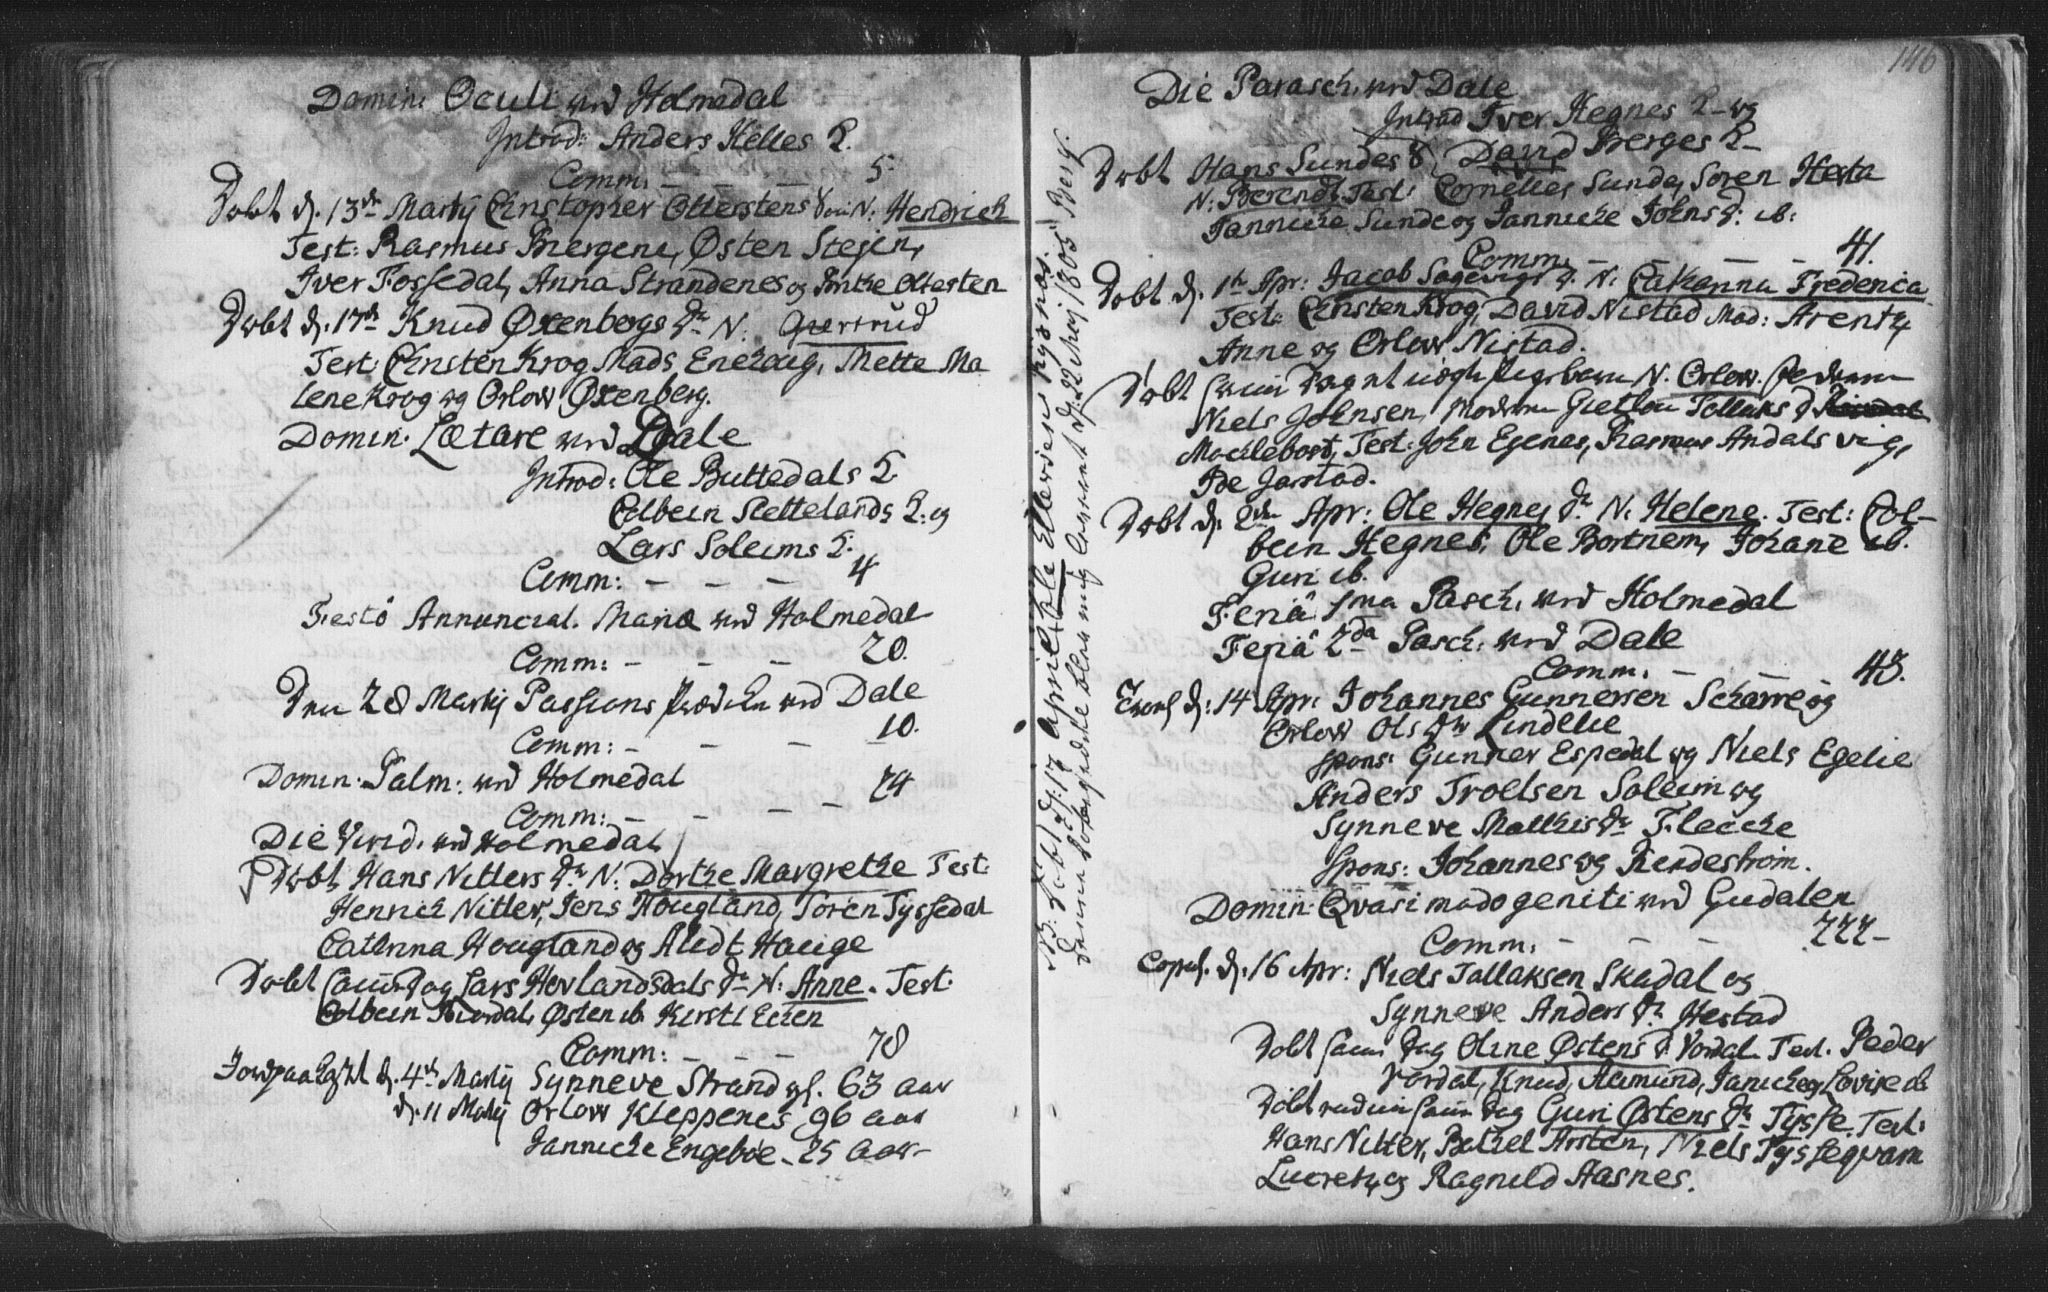 Domin: Oculi ved Holmedal
Introd: Anders Helles K.
Comm: - - - 5.
Døbt d. 13de Martij Christopher Otterstens N: Hendrich
Test: Rasmus Bergene, Østen Stejen,
Iver Fossedal, Anna Strandenes og Otterten
Døbt d. 17de Knud Øxenbergs Dr N: Giertrud
Test: Christen Krog, Mads Enehaug, Mette Ma
lene Krog og Orlow Øxenberg.
Domin. Lætare ved Dale
Introd: Ole Buttedals K.
Colbein Slettelands K. og
Lars Soleims K.
Comm: - - - 4
Festo Annunciat. Mariæ ved Holmedal
Comm: - - - 20.
Den 28 Martij Passions Prædiken ved Dale
Comm: - - - 10.
Domin. Palm: ved Holmedal
Comm: - - - - 74
Die Virid. ved Holmedal
Døbt Hans Nitters Dr N: Dorthe Margrethe Test:
Henrich Nitter, Jens Hougland, Søren Tyssedal
Cathrina Hougland og Hauge
Døbt samme Dag Lars Hovlandsdals Dr N: Anne. Test:
Colbein, Østen ib. Kirsti Eeken
Comm: - - - 78
Jordpaakastet d. 4de Martij Synneve Strand gl. 63 aar
d. 11 Martij Orlow Kleppenes 96 aar
Jannicke Engebøe - 25 aar -
NB. Født d: 17 April Ole Ellersen Kysnøs.
Denne blev mig leveret d: 22 Maj 1805 Berg.
146
Die Parasch. ved Dale
Introd Iver Hegnes K - og
David Berges K -
Døbt Hans Sundes
N: Berendt, Test: Cornelius Sunde, Søren Hesta
Jannicke Sunde og Jannicke Johns D: ib:
Comm: - - - 41.
Døbt d. 1st Apr: Jacob D. N: Catharina Frederica
Test: Christen Krog, David Nistad Mad: Arentz,
Anne og Orlow Nistad.
Døbt samme Dag et uægte Pigebarn N. Orlow. Faderen
Niels Johnsen, Moderen Giertlou Tollaks D
Mochlebost, Test: John Egenes, Rasmus Andalsvig,
Jarstad.
Døbt d. 2de Apr: Ole Hegnes Dr N: Helene. Test: Col-
bein Hegnes, Ole Bortnem, Johane ib.
Guri ib.
Feriâ 1ma Pasch. ved Holmedal
Feriâ 2da Pasch: ved Dale
Comm: - - 43.
d: 14 Apr: Johannes Gunnersen Scharre og
Orlow Ols Dr Lindelie
Spons: Gunner Espedal og Niels Egelie
Anders Troelsen Soleim og
Synneve Matthis Dr Flecke
Spons: Johannes og Rendestrøm.
Domin: Qvasimodogeniti ved Gudalen
Comm: - - - 222 -
Copul. d. 16 Apr: Niels Tallaksen Skadal og
Synneve Anders Dr Hestad
Døbt samme Dag Oline Østens D Vordal. Test. Peder
Vordal, Knud, Aamund, Janiche og Lovise ib
Døbt samme Dag Guri Østens Dr Tysse Test:
Hans Nitter, Bethel Arsten, Niels Tysseqvam
Lucretz, og Ragnild Aasnes.